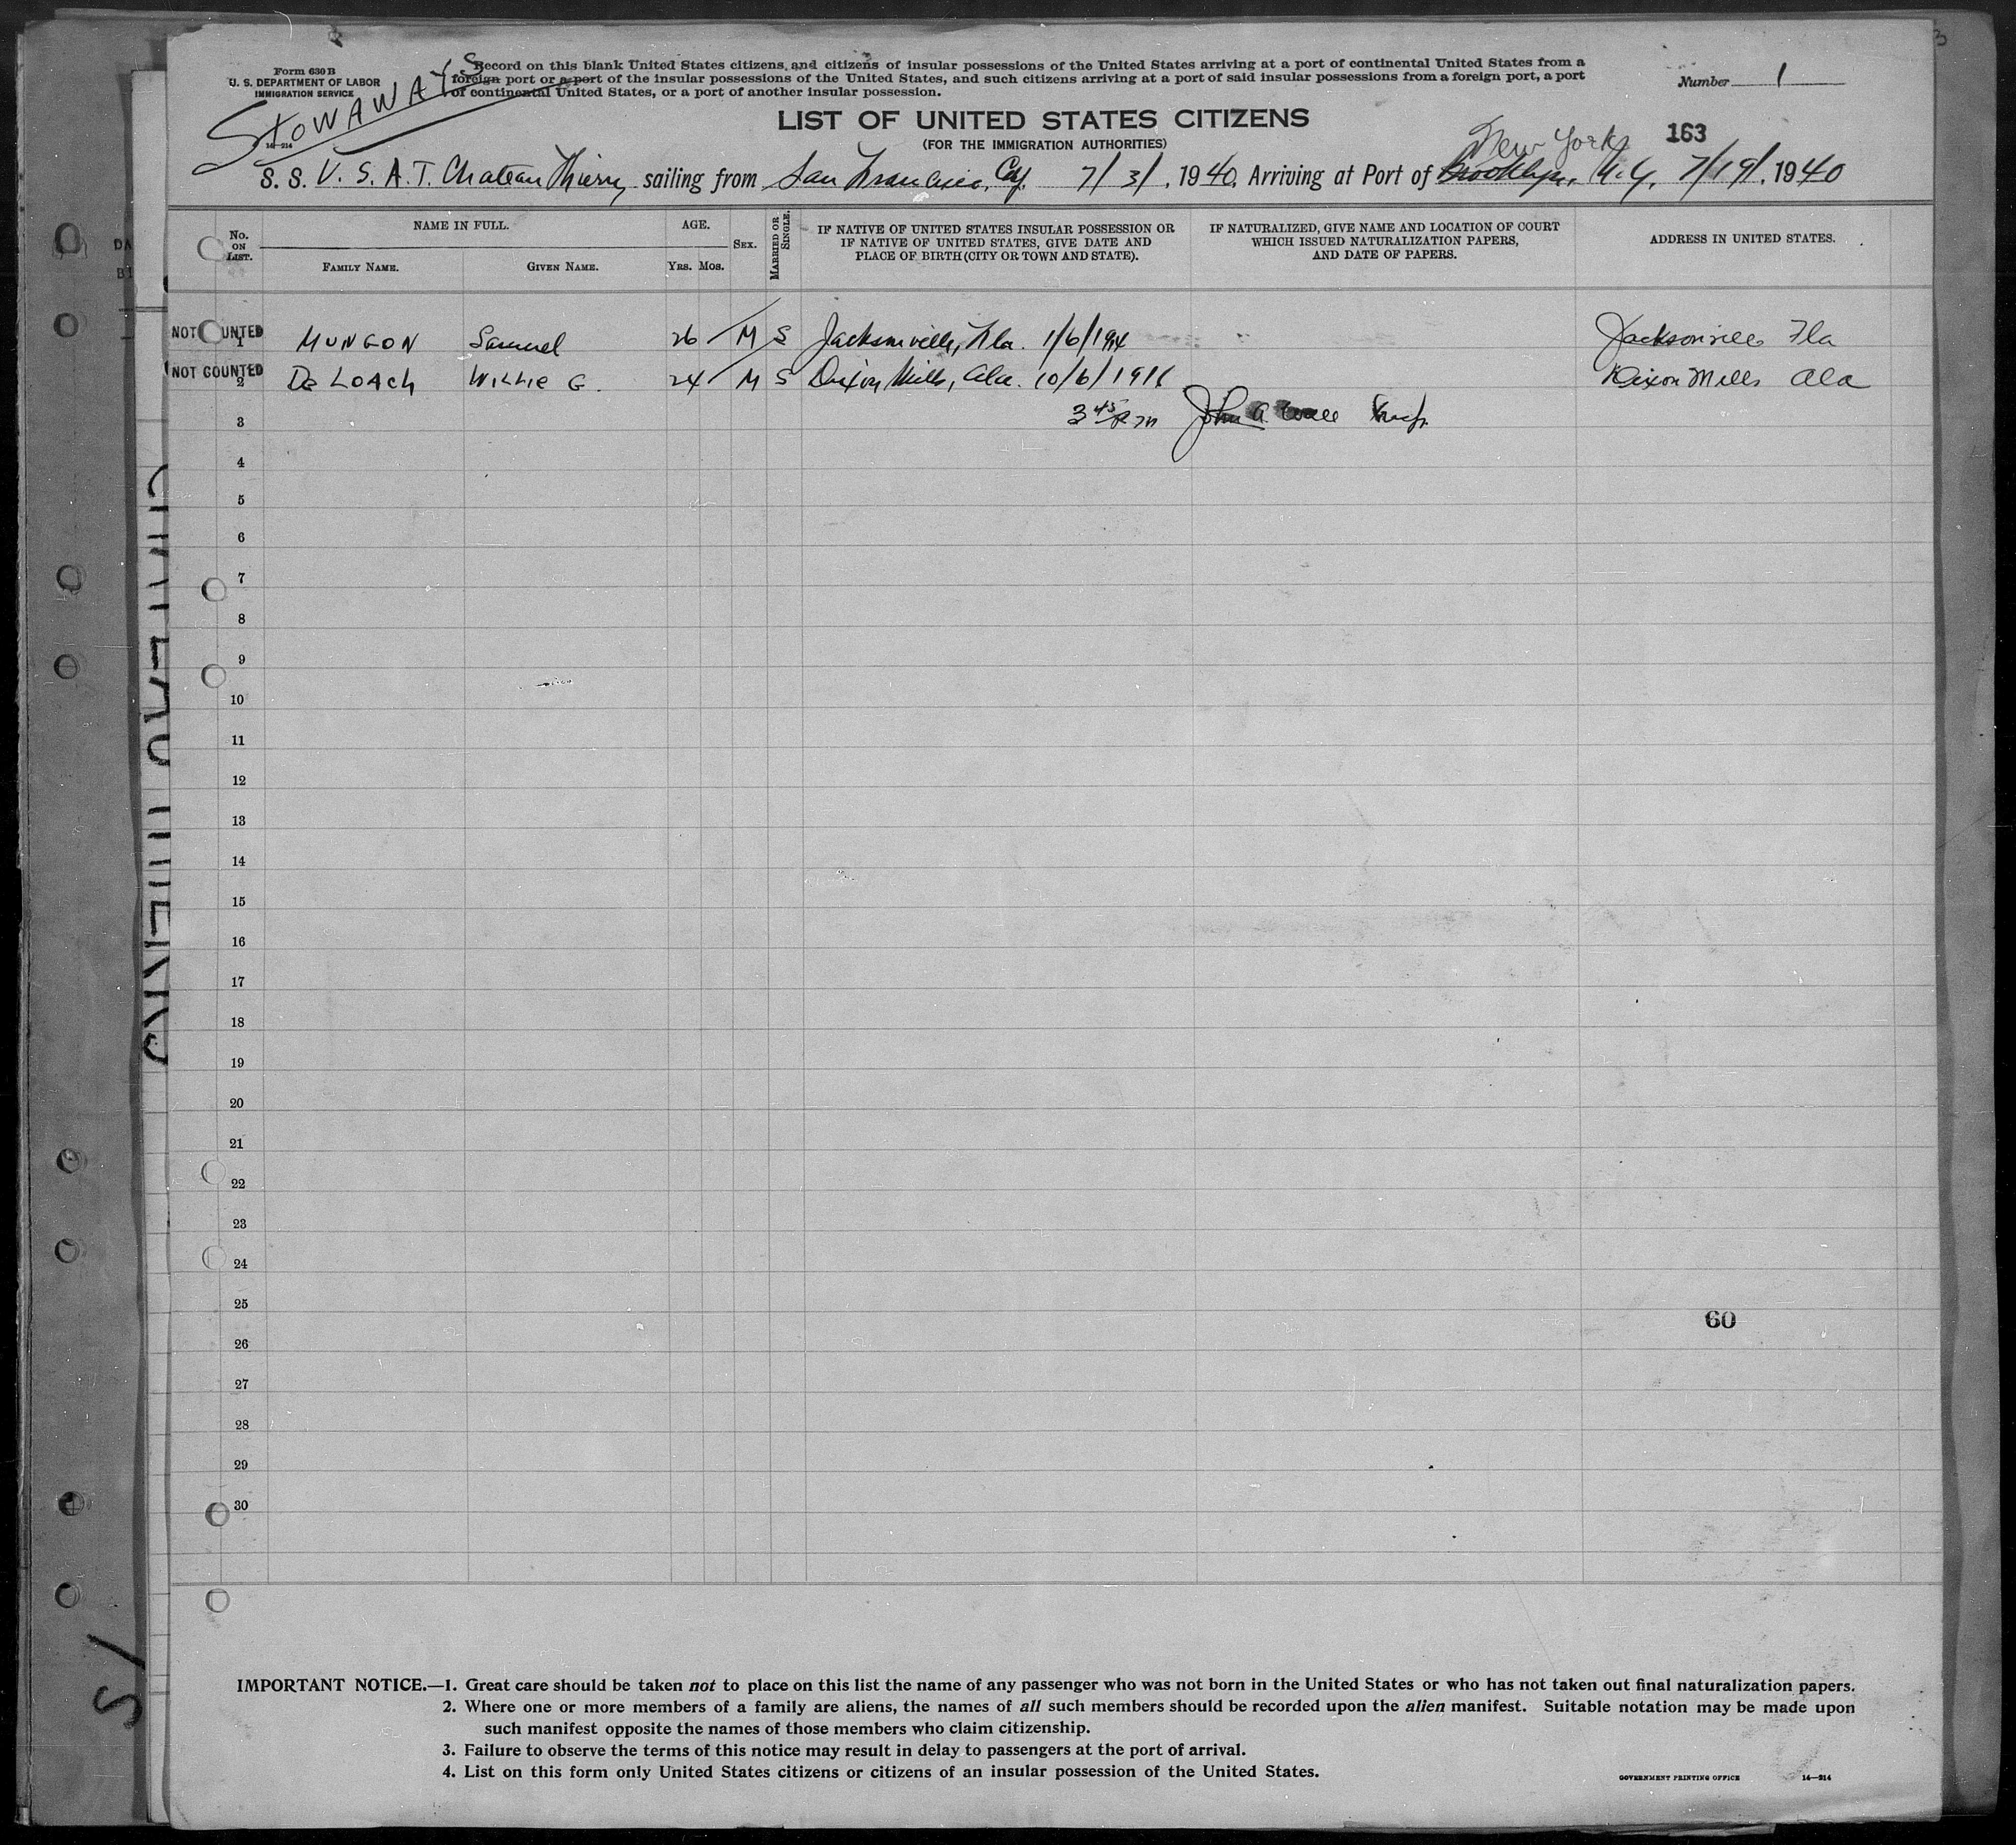 Form 630 B
U. S. DEPARTMENT OF LABOR
IMMIGRATION SERVICE
14—214
STOWAWAYS
Record on this blank United States citizens, and citizens of insular possessions of the United States arriving at a port of continental United States from a
foreign port or a port of the insular possessions of the United States, and such citizens arriving at a port of said insular possessions from a foreign port, a port
of continental United States, or a port of another insular possession.
Number 1
LIST OF UNITED STATES CITIZENS
(FOR THE IMMIGRATION AUTHORITIES)
New York 163
S. S. U. S. A. T. Chateau Thierry sailing from San Francisco, 7/3/, 1940, Arriving at Port of Brooklyn, N.Y. 7/19/, 1940
No. ON LIST. NAME IN FULL. AGE. SEX. MARRIED OR SINGLE. IF NATIVE OF UNITED STATES INSULAR POSSESSION OR IF NATIVE OF UNITED STATES, GIVE DATE AND PLACE OF BIRTH (CITY OR TOWN AND STATE). IF NATURALIZED, GIVE NAME AND LOCATION OF COURT WHICH ISSUED NATURALIZATION PAPERS, AND DATE OF PAPERS. ADDRESS IN UNITED STATES.
FAMILY NAME. GIVEN NAME. YRS. MOS.
NOT COUNTED 1 MUNGON Samuel 26 M S Jacksonville, Fla. 1/6/1914 Jacksonville Fla
NOT COUNTED 2 DE LOACH WILLIE G. 24 M S Dixon Mills, Ala. 10/6/1916 Dixon Mills Ala
3 3 45 P m John A.
4
5
6
7
8
9
10
11
12
13
14
15
16
17
18
19
20
21
22
23
24
25
60
26
27
28
29
30
IMPORTANT NOTICE.—1. Great care should be taken not to place on this list the name of any passenger who was not born in the United States or who has not taken out final naturalization papers.
2. Where one or more members of a family are aliens, the names of all such members should be recorded upon the alien manifest. Suitable notation may be made upon
such manifest opposite the names of those members who claim citizenship.
3. Failure to observe the terms of this notice may result in delay to passengers at the port of arrival.
4. List on this form only United States citizens or citizens of an insular possession of the United States.
GOVERNMENT PRINTING OFFICE 14—214